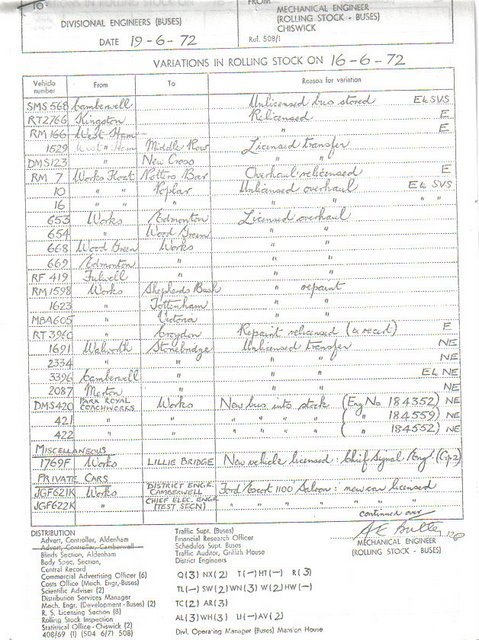 TO
DIVISIONAL ENGINEERS (BUSES)
DATE 19-6-72
FROM
MECHANICAL ENGINEER
(ROLLING STOCK - BUSES)
CHISWICK
Ref. 508/1
VARIATIONS IN ROLLING STOCK ON 16-6-72
Vehicle number From To Reason for variation
SMS 568 Camberwell Unlicensed bus stored E & SVS
RT2766 Kingston Relicensed E
RM 166 West Ham " E
1529 West Ham Middle Row Licensed transfer
DMS123 " New Cross " "
RM 7 Works Float Potters Bar Overhaul relicensed E
10 " " Poplar Unlicensed overhaul E & SVS
16 " " " " " " "
653 Works Edmonton Licensed overhaul
654 " Wood Green "
668 Wood Green Works "
669 Edmonton " "
RF 419 Fulwell " "
RM1598 Works Shepherds Bush " repaint
1623 " Tottenham "
MBA605 " Victoria "
RT3960 " Croydon Repaint relicensed E
1691 Walworth Stonebridge Unlicensed transfer NE
2334 " " " " NE
3396 Camberwell " " " E & NE
2087 Merton " " " NE
DMS420 PARK ROYAL COACHWORKS Works New bus into stock (Eng No 184352) NE
421 " " " " " " ( " 184559) NE
422 " " " " " " ( " 184552) NE
MISCELLANEOUS
1769F Works LILLIE BRIDGE New vehicle licensed: Chief Signal Eng. (Gp2)
PRIVATE CARS
JGF621K Works DISTRICT ENGR. CAMBERWELL Ford Escort 1100 Saloon: new car licensed
JGF622K " CHIEF ELEC. ENGR. (TEST SECN) " " " " " " "
continued over
DISTRIBUTION
Advert. Controller, Aldenham
Advert. Controller, Camberwell
Blinds Section, Aldenham
Body Spec. Section,
Central Record
Commercial Advertising Officer (6)
Costs Office (Mech. Engr.-Buses)
Scientific Adviser (2)
Distribution Services Manager
Mech. Engr. (Development - Buses) (2)
R. S. Licensing Section (8)
Rolling Stock Inspection
Statistical Office - Chiswick (2)
408/69 (1) (504 6/71 508)
Traffic Supt. (Buses)
Financial Research Officer
Schedules Supt. Buses
Traffic Auditor, Griffith House
District Engineers
Q(3) NX(2) T(—) HT(—) R(3)
TL(—) SW(2) WN(3) W(2) HW(—)
TC(2) AR(3)
AL(3) WH(3) U(—) AV(2)
Divl. Operating Manager (Buses) Mansion House
MECHANICAL ENGINEER
(ROLLING STOCK - BUSES)